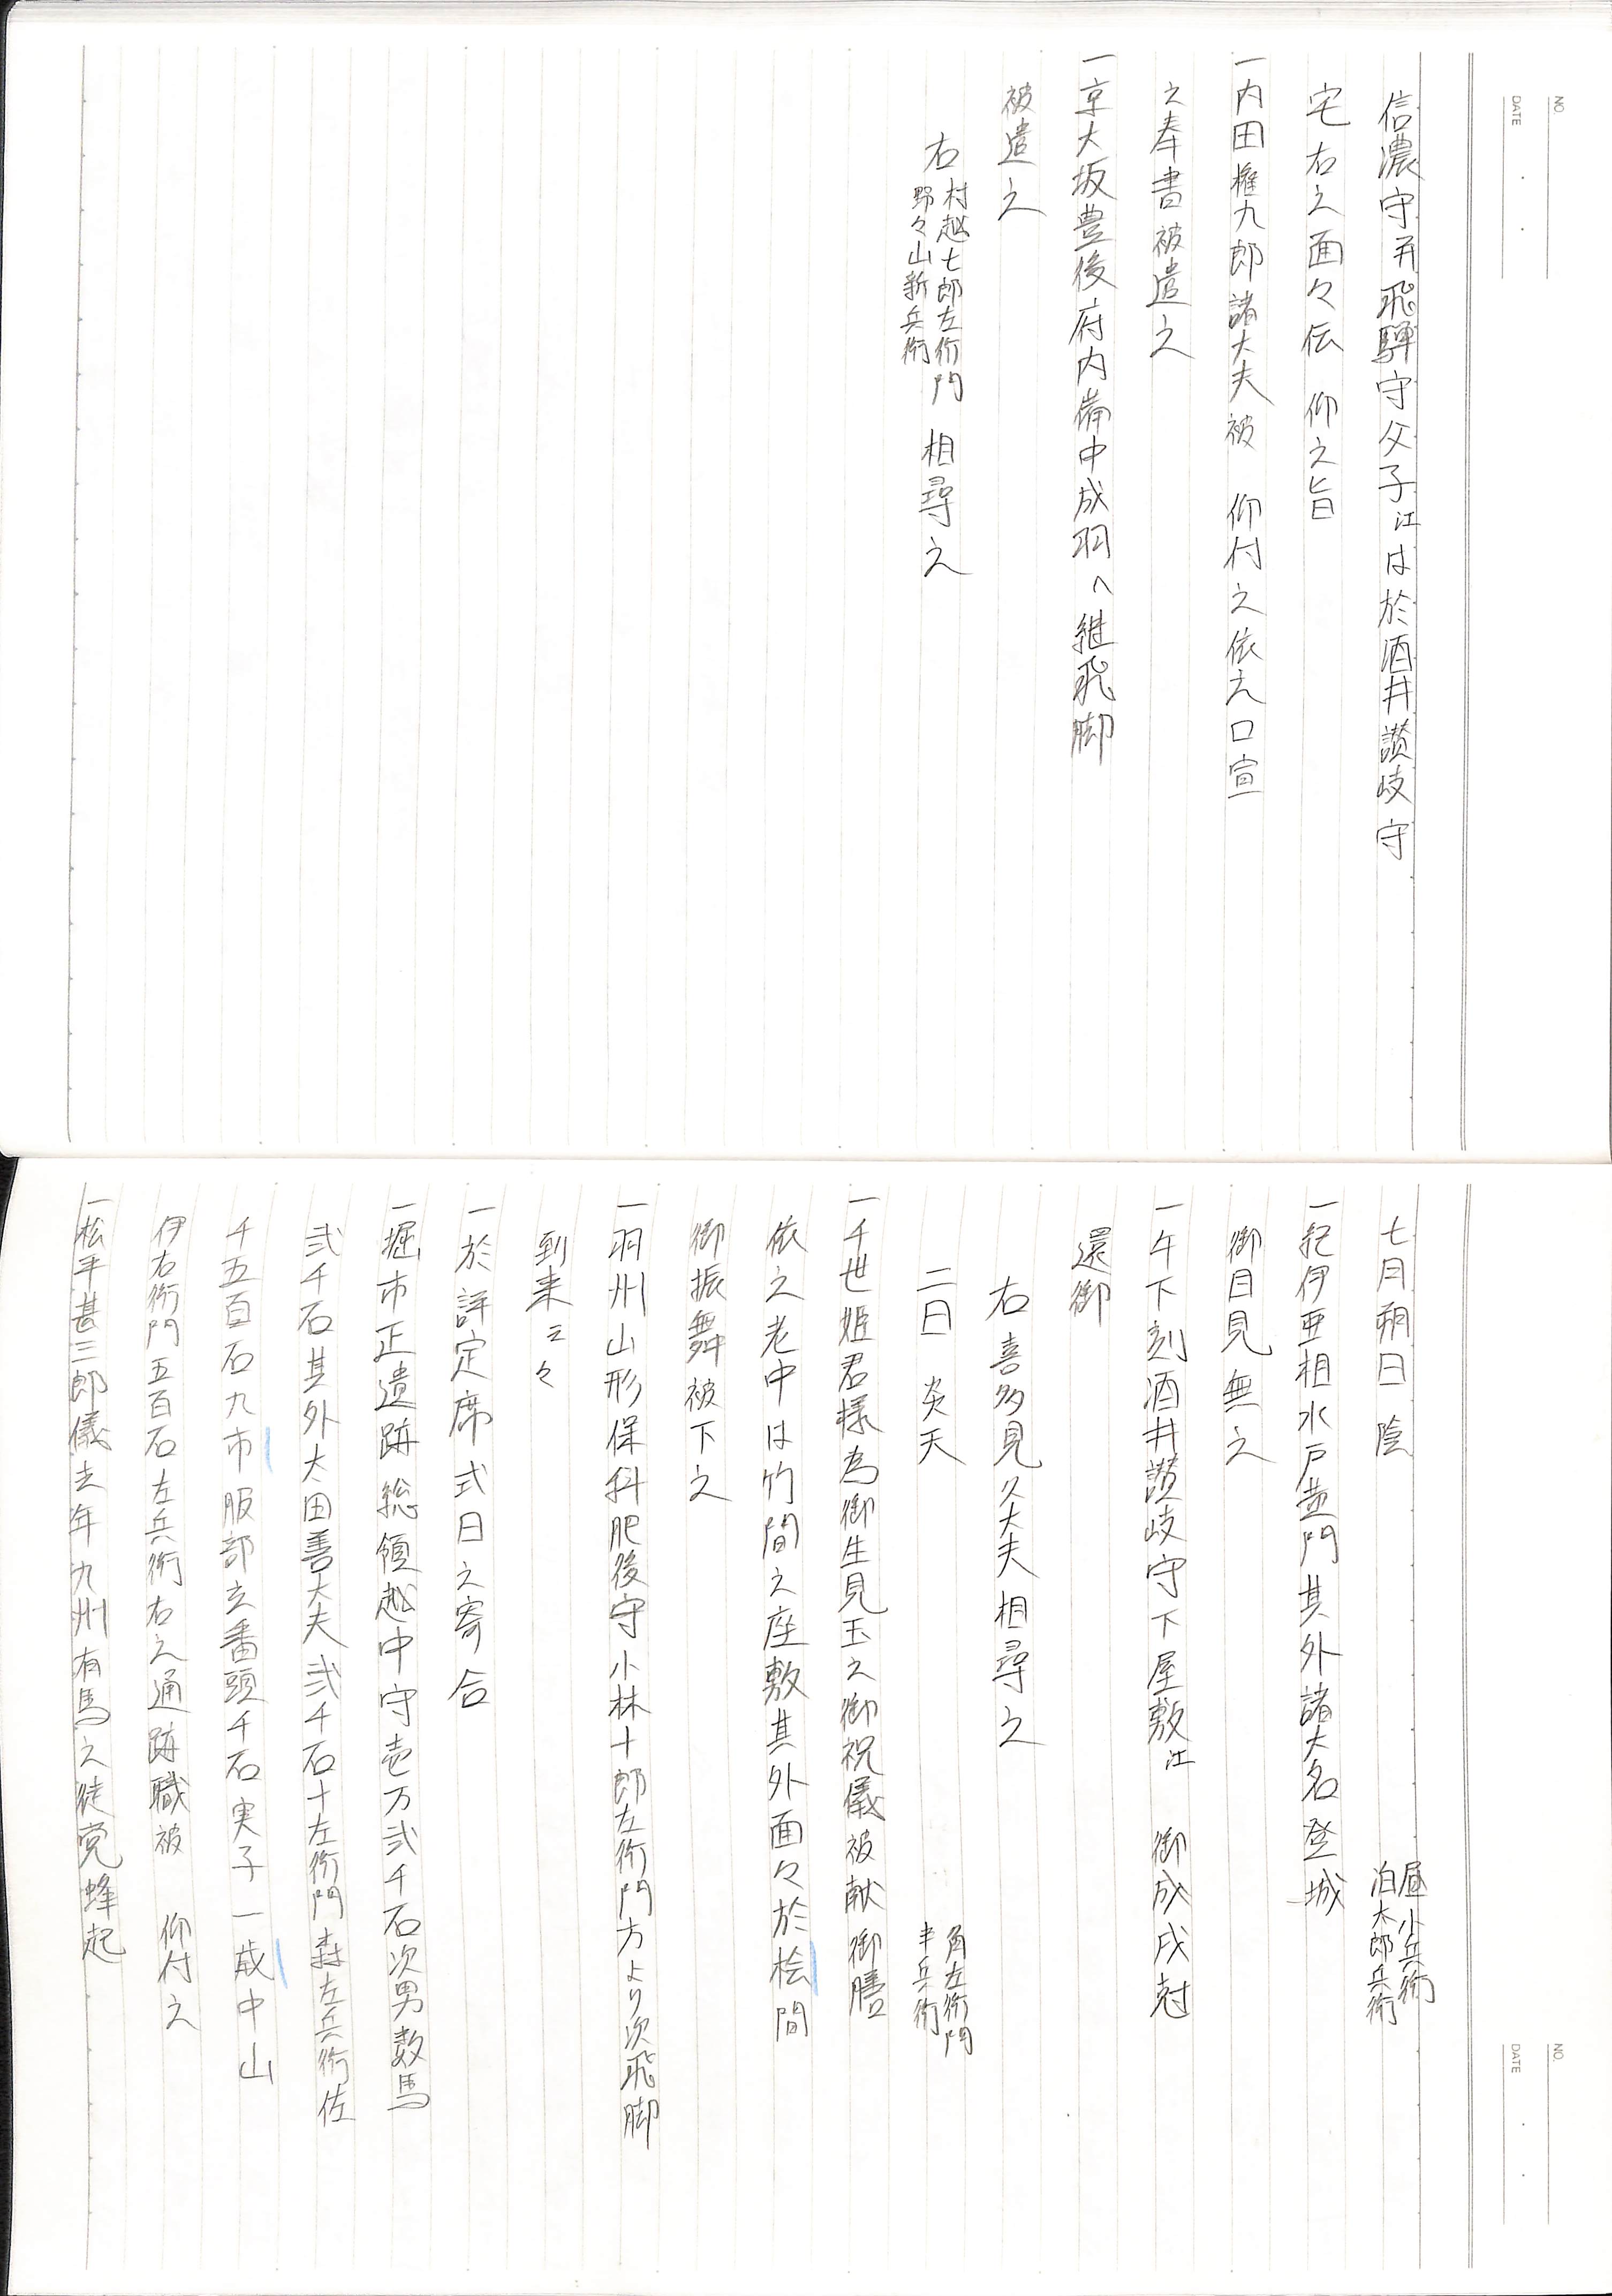 NO.
DATE
信濃守并飛騨守父子江は於酒井讃岐守
宅右之面々伝 仰之旨
一内田権九郎諸大夫被 仰付之依之口宣
之奉書被遣之
一京大坂豊後府内備中成羽へ継飛脚
被遣之
右村越七郎左衛門 相尋之
野々山新兵衛
NO.
DATE
七月朔日 陰
昼小兵衛
泊太郎兵衛
一紀伊亜相水戸黄門其外諸大名登城
御目見無之
一午下刻酒井讃岐守下屋敷江 御成戌尅
還御
右喜多見久太夫相尋之
二日 炎天
角左衛門
半兵衛
一千世姫君様為御生見玉之御祝儀被献御膳
依之老中は竹間之座敷其外面々於桧間
御振舞被下之
一羽州山形保科肥後守小林十郎左衛門方より次飛脚
到来云々
一於評定席式日之寄合
一堀市正遺跡総領越中守壱万弐千石次男数馬
弐千石其外大田善大夫弐千石十左衛門森左兵衛佐
千五百石九市服部玄番頭千石実子一哉中山
伊右衛門五百石左兵衛右之通跡職被 仰付之
一松平甚三郎儀去年九州有馬之徒党蜂起